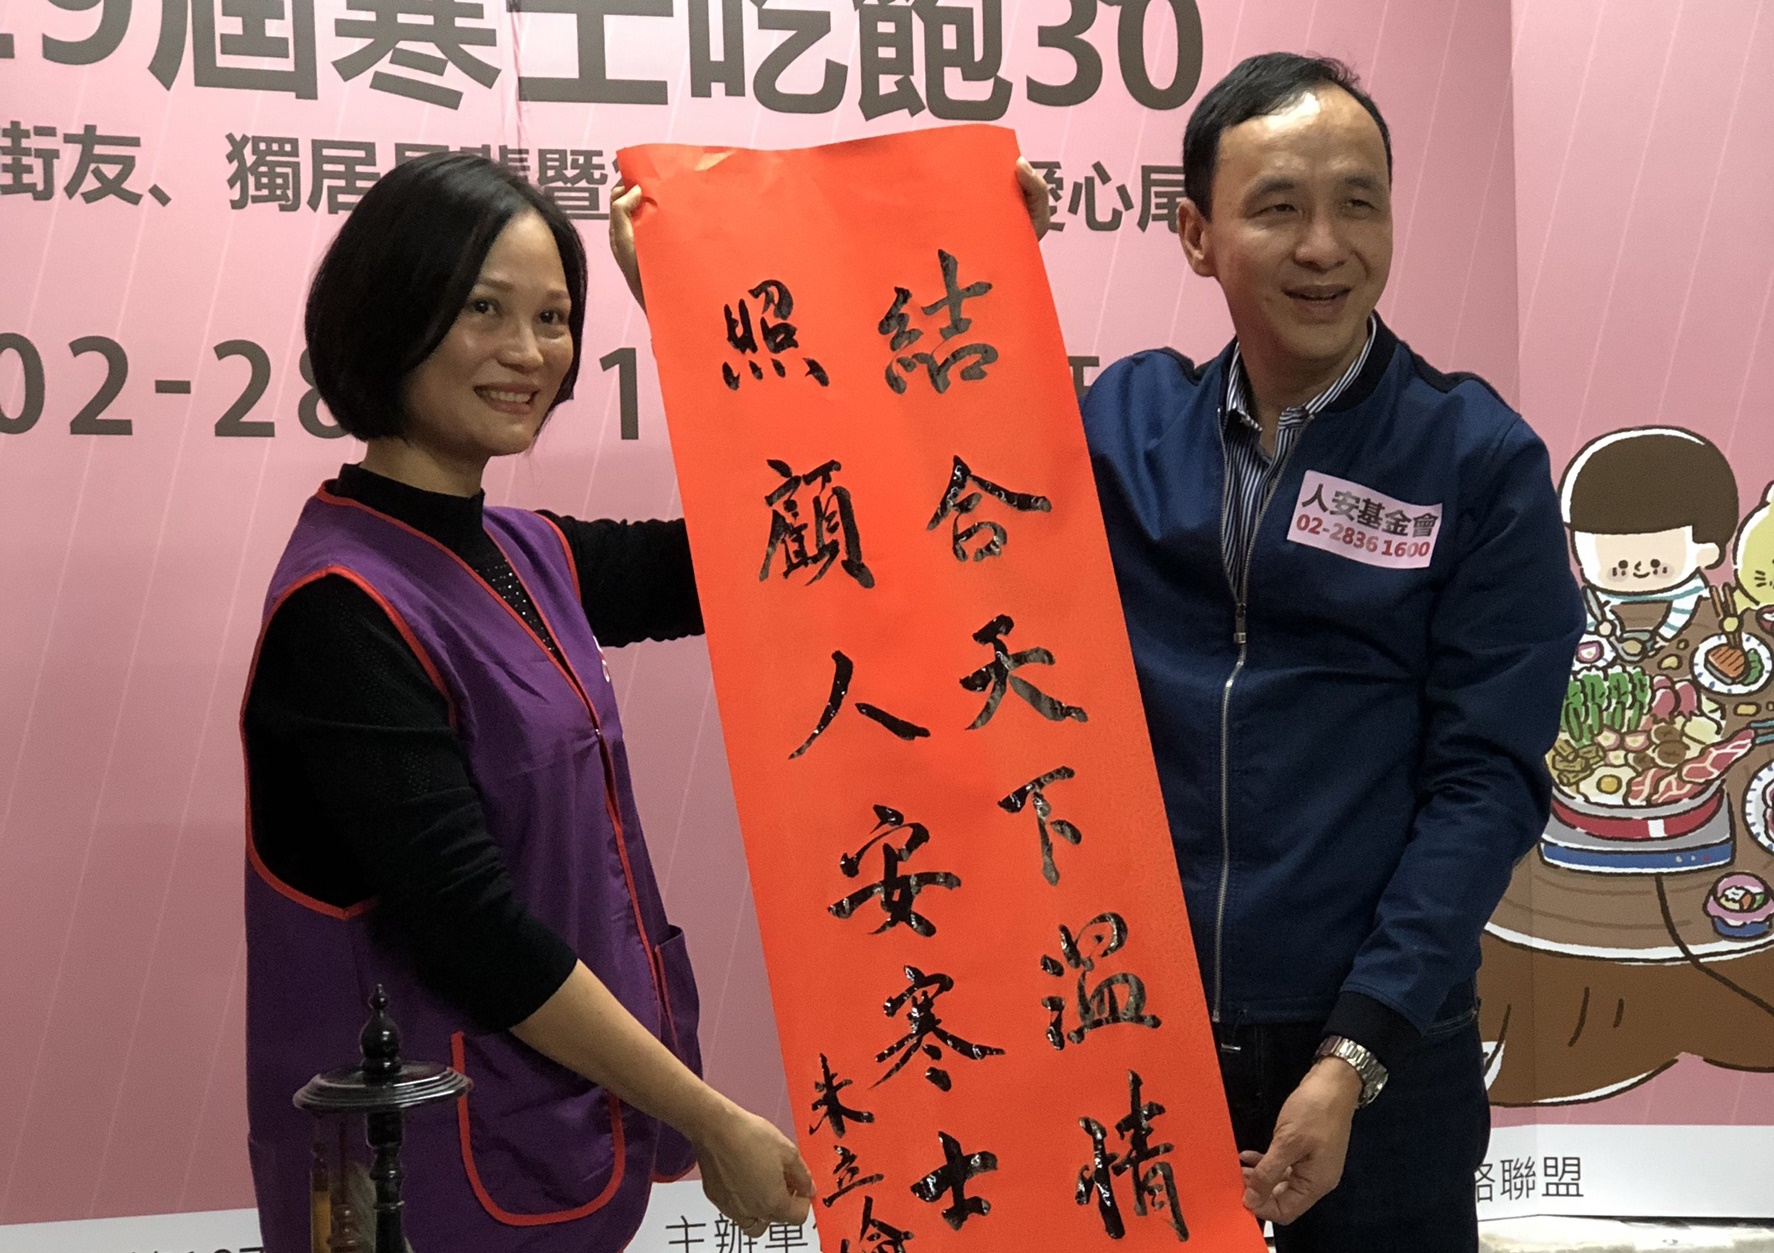 29屆寒士吃飽30
街友、獨居
暨
愛心尾
02-28
1
結合天下溫情
照顧人安寒士
朱立倫
人安基金會
02-2836 1600
主辦單
聯盟